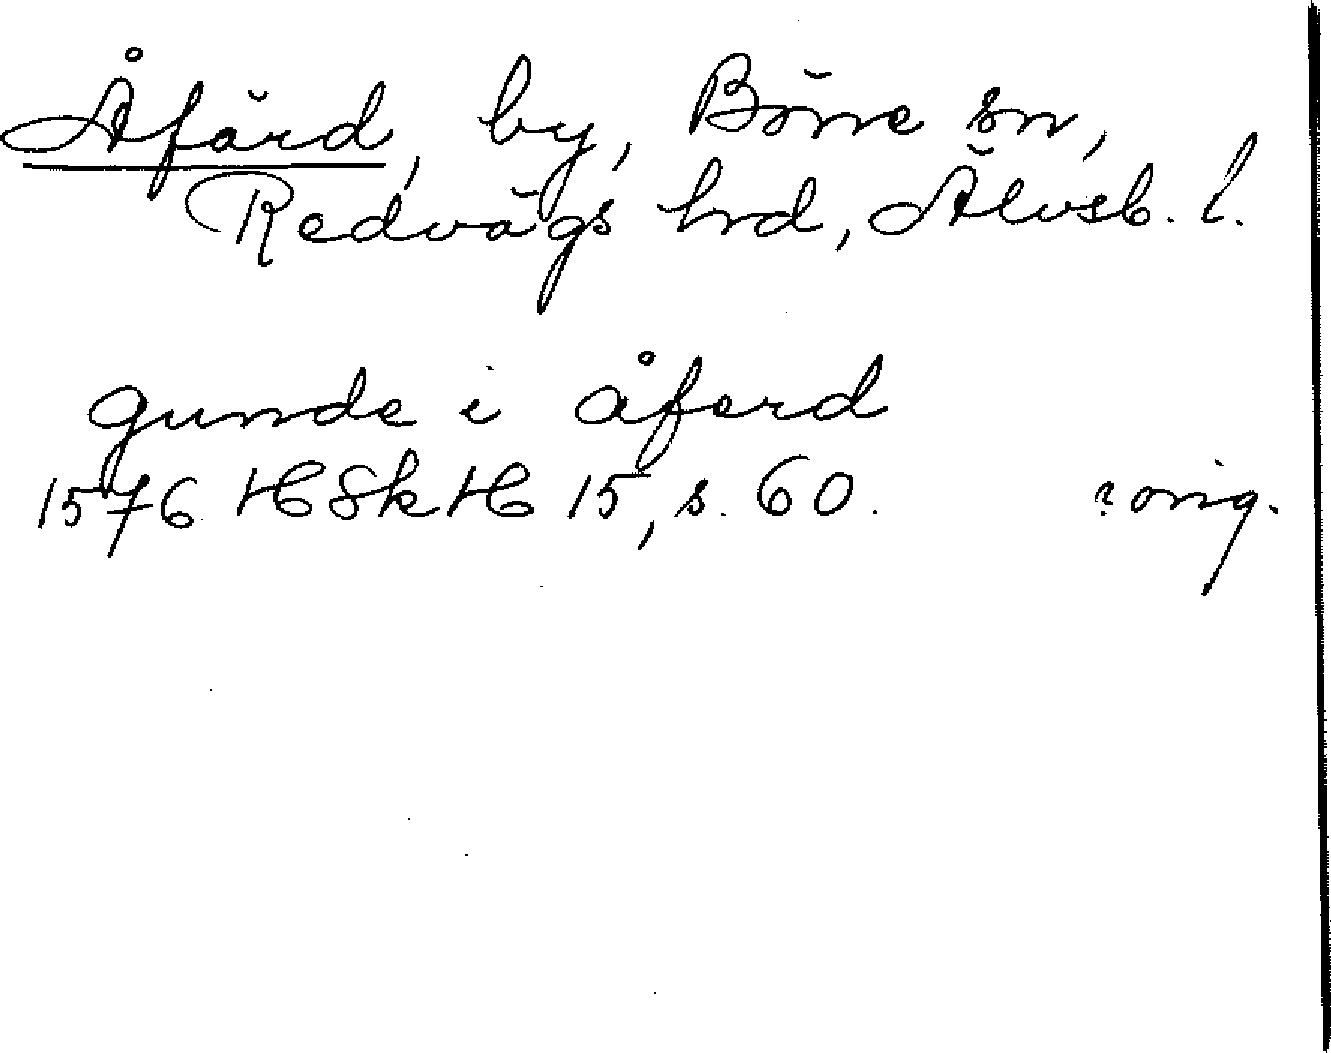 Åfärd, by, Böne sn,
Redvägs hrd, Älvsb. l.
gunde i åferd
1576 HSkH 15, s. 60. ? orig.